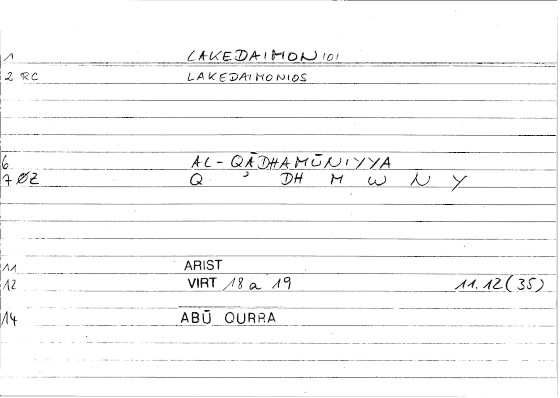 1 LAKEDAIMONIOI
2 RC LAKEDAIMONIOS
6 AL-QĀDHAMŪNIYYA
7 ØZ Q ʾ DH M W N Y
11 ARIST
12 VIRT 18 a 19 11.12 (35)
14 ABŪ QURRA